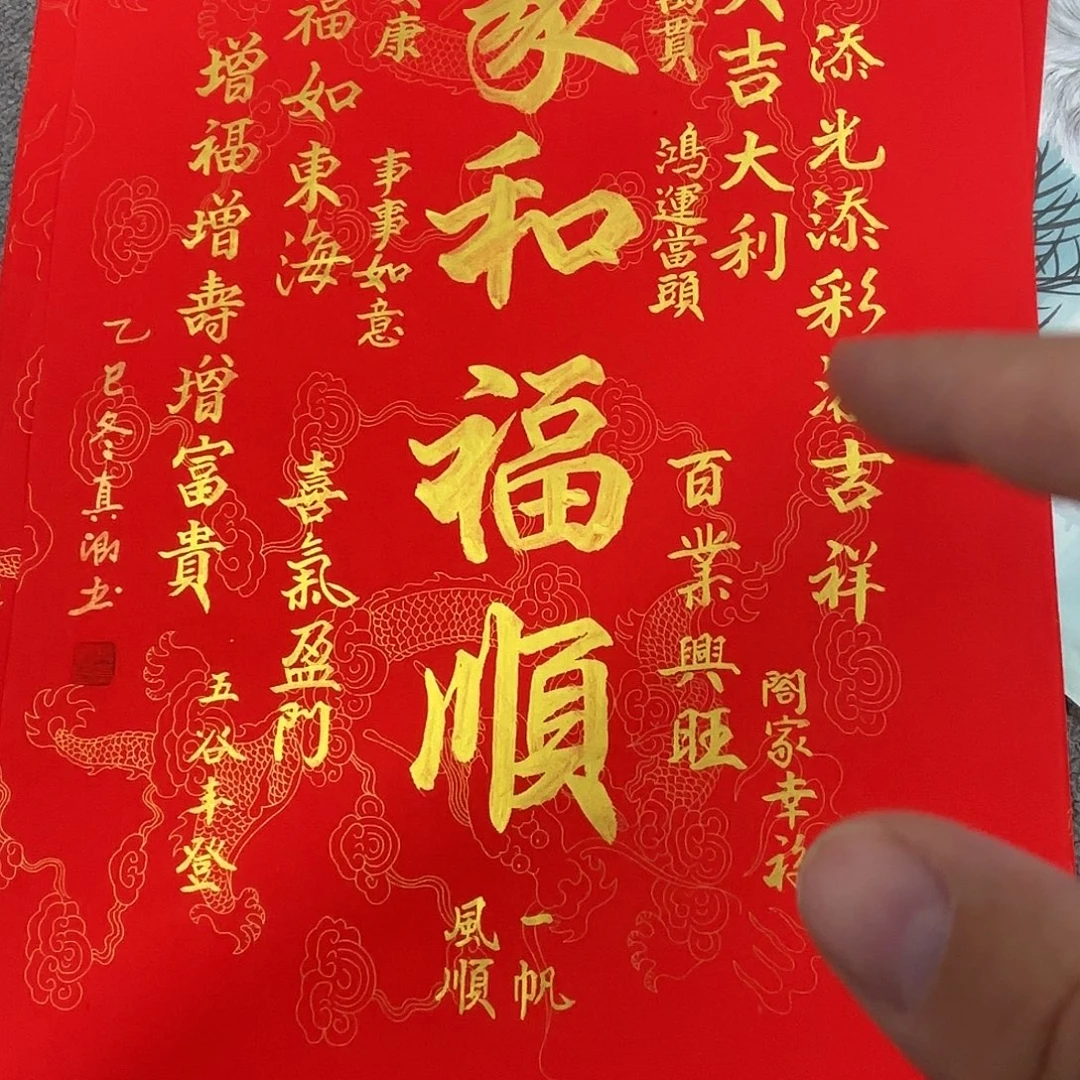 添光添彩添吉祥
闔家幸福
大吉大利
百業興旺
萬貫
鴻運當頭
家和福順
一帆
風順
康
事事如意
福如東海
喜氣盈門
增福增壽增富貴
五谷丰登
乙巳冬真渤书